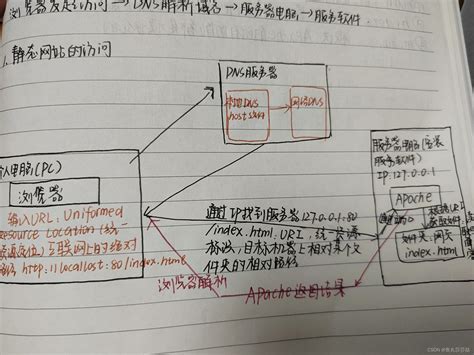 浏览器发起访问→DNS解析域名→服务器电脑→服务软件
1.静态网站的访问
DNS服务器
本地DNS
host文件
网络DNS
输入电脑(PC)
浏览器
输入URL: Uniformed
Resource Location(统一
资源定位),互联网上的绝对
路径 http://localhost:80/index.html
服务器电脑(安装
服务软件)
IP:127.0.0.1
Apache
监听端口
文件夹:网关
index.html
通过IP找到服务器127.0.0.1:80
/index.html:URI,统一资源
标识,目标机器上相对某个文
件夹的相对路径
浏览器解析
Apache返回结果